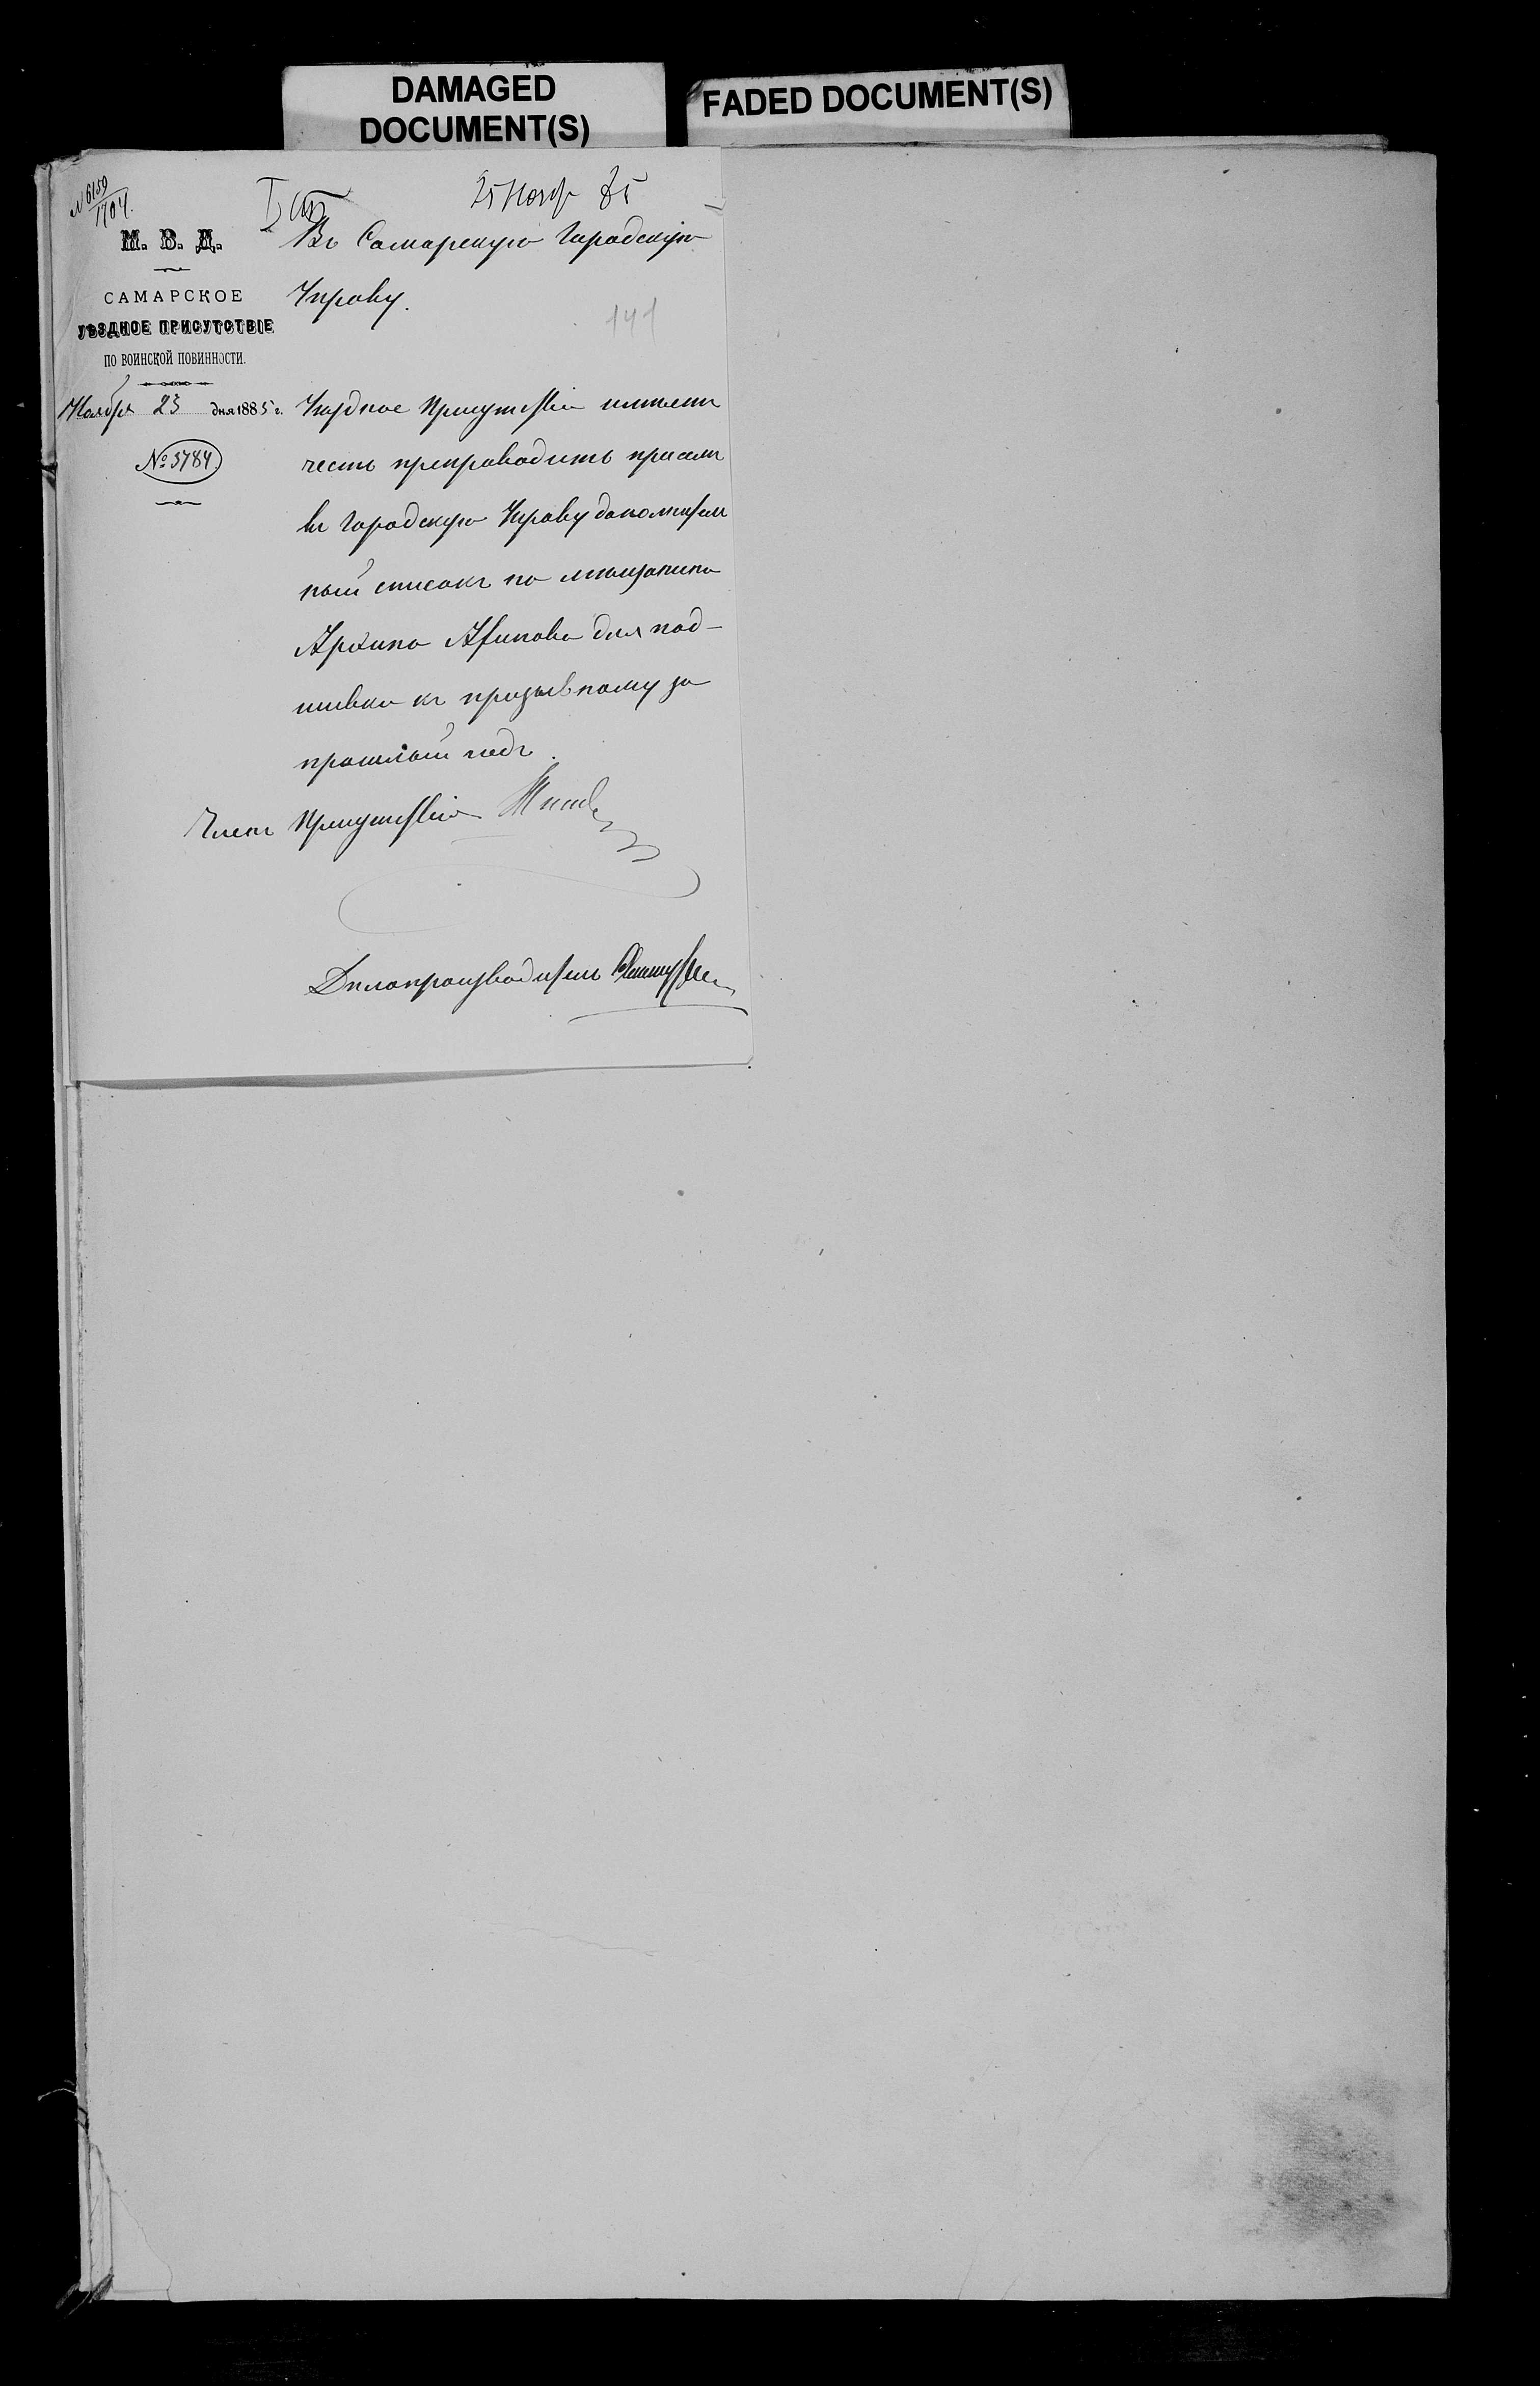 DAMAGED
DOCUMENT(S)
FADED DOCUMENT(S)
№ 6159
1704.
25 Нояб 85
М. В. Д.
САМАРСКОЕ
УѢЗДНОЕ ПРИСУТСТВІЕ
ПО ВОИНСКОЙ ПОВИННОСТИ.
Ноября 23 дня 1885 г.
№ 3784.
Въ Самарскую Городскую
Управу.
141
Уѣздное Присутствіе имѣетъ
честь препроводить при семъ
въ Городскую Управу дополнитель
ный списокъ на мѣщанина
Архипа для под-
шивки къ призывному за
прошлый годъ.
Членъ Присутствія
Дѣлопроизводитель